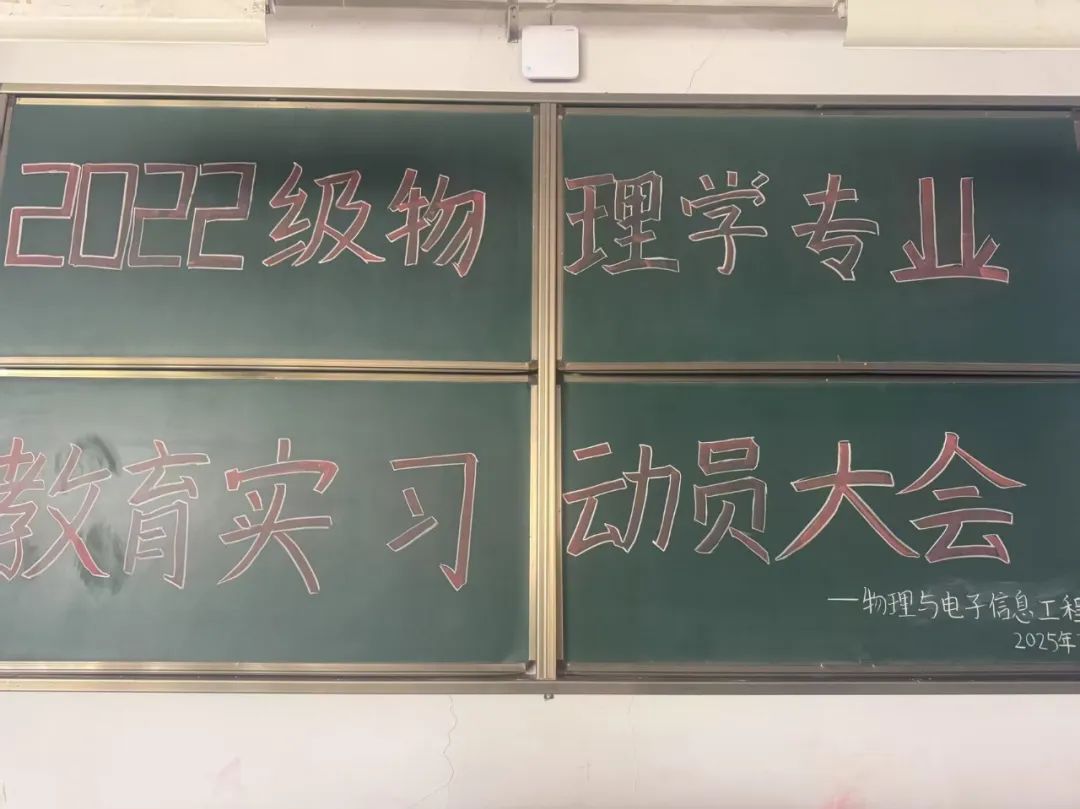 2022级物理学专业
教育实习动员大会
—物理与电子信息工程
2025年